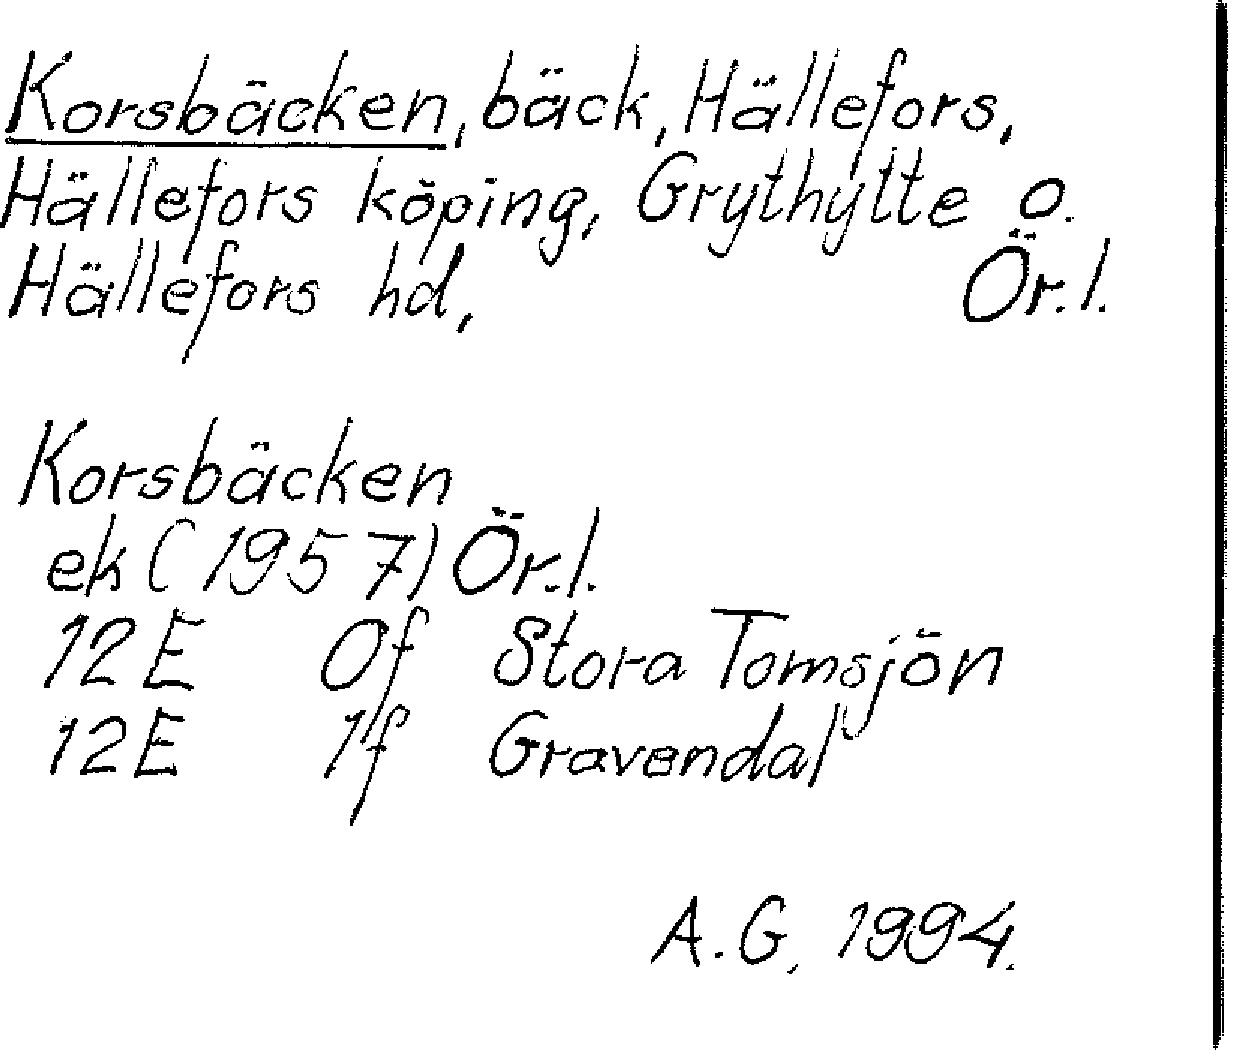 Korsbäcken, bäck, Hällefors,
Hällefors köping, Grythytte o.
Hällefors hd, Ör.l.
Korsbäcken
ek (1957) Ör.l.
12E 0f Stora Tomsjön
12E 1f Gravendal
A.G. 1994.